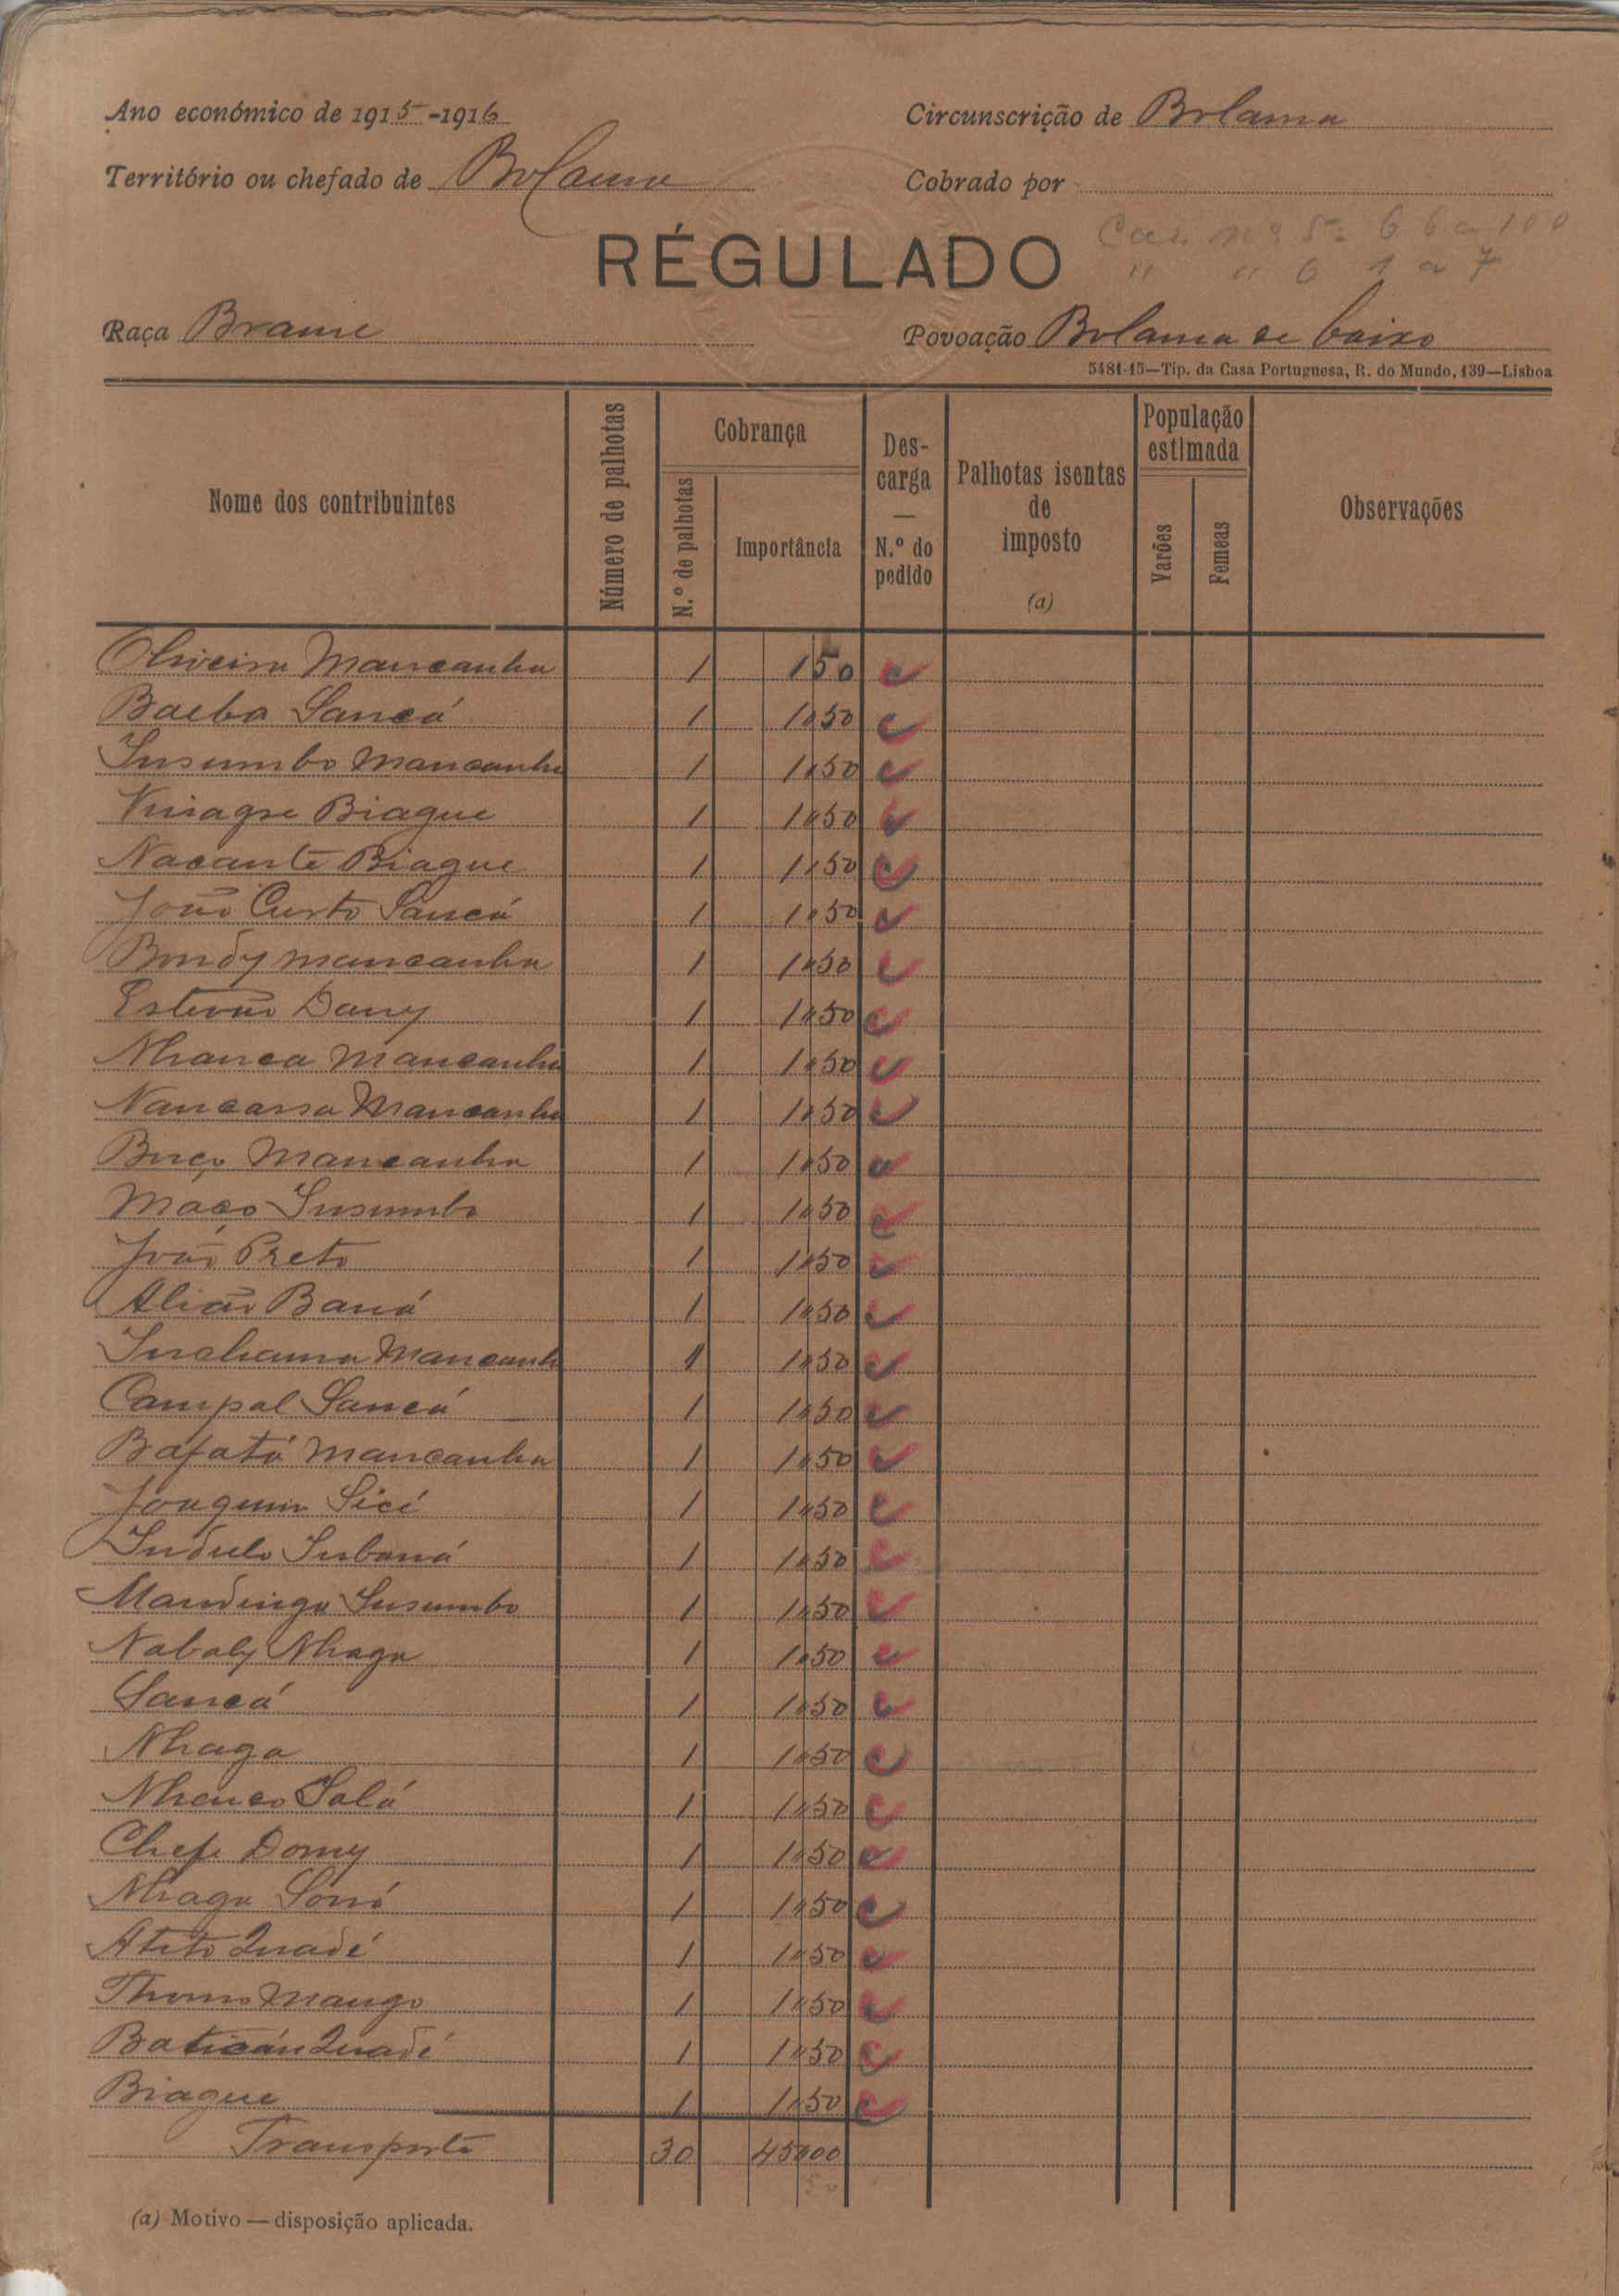 Ano económico de 1915-1916
Circunscrição de Bolama
Território ou chefado de Bolama
Cobrado por
RÉGULADO
Cad. nº 5 = 66 a 100
" " 6 1 a 7
Raça Brame
Povoação Bolama de baixo
5481-15—Tip. da Casa Portuguesa, R. do Mundo, 139—Lisboa
Nome dos contribuintes
Número de palhotas
Cobrança
N.º de palhotas
Importância
Descarga — N.º do pedido
Palhotas isentas de imposto (a)
População estimada
Varões
Femeas
Observações
Oliveira Mancanha 1 150
Baeba Sancá 1 1$50
Insumbo Mancanha 1 1$50
Vinagre Biague 1 1$50
Nacante Biague 1 1$50
João Custo Sancá 1 1$50
Bondy Mancanha 1 1$50
Estevão Dany 1 1$50
Nhanca Mancanha 1 1$50
Nancassa Mancanha 1 1$50
Buço Mancanha 1 1$50
Maço Insumbo 1 1$50
João Preto 1 1$50
Alião Baná 1 1$50
Inchama Mancanh 1 1$50
Campal Sancá 1 1$50
Bafatá Mancanha 1 1$50
Joaquim Sicé 1 1$50
Indulo Inbaná 1 1$50
Mandinga Insumbo 1 1$50
Nabaly Nhaga 1 1$50
Sancá 1 1$50
Nhaga 1 1$50
Nhanco Salá 1 1$50
Chefe Domy 1 1$50
Nhaga Soná 1 1$50
Atito Quadé 1 1$50
Thomo Mango 1 1$50
Baticán Quadé 1 1$50
Biague 1 1$50
Transporte 30 45$00
(a) Motivo — disposição aplicada.